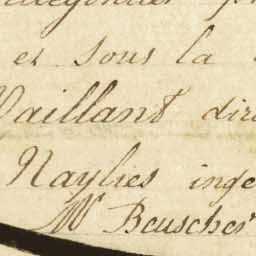 et sous la
Vaillant dir
Naylies inge
Mr Beuscher